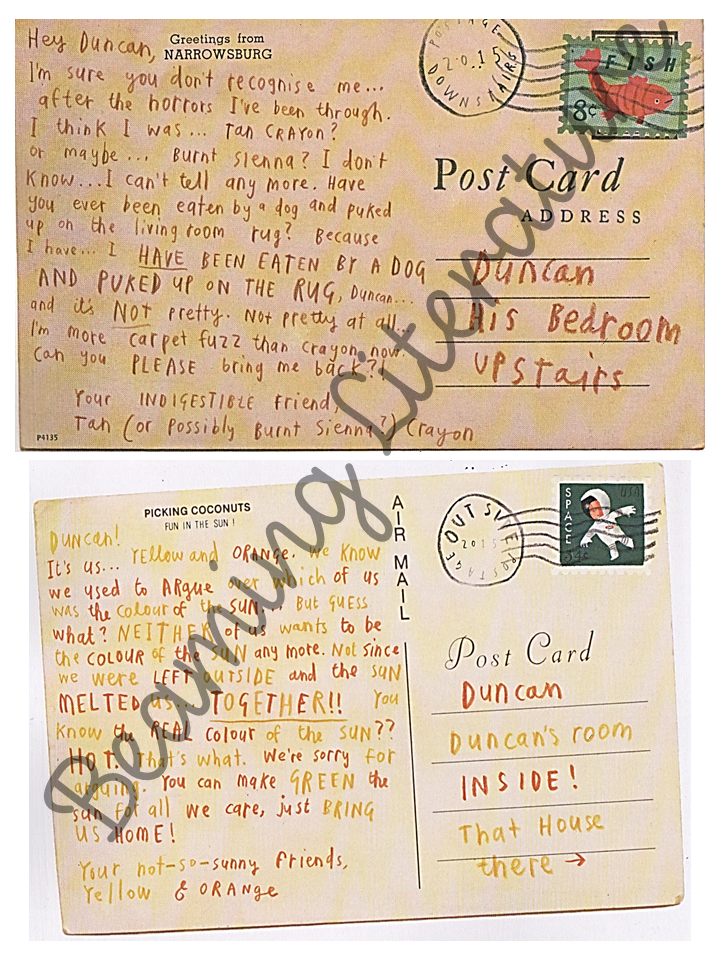 Greetings from
NARROWSBURG
Hey Duncan,
I'm sure you don't recognise me...
after the horrors I've been through.
I think I was... TAN CRAYON?
or maybe... BURNT SIENNA? I don't
know... I can't tell any more. Have
you ever been eaten by a dog and puked
up on the living room rug? Because
I have... I HAVE BEEN EATEN BY A DOG
AND PUKED UP ON THE RUG, Duncan...
and it's NOT pretty. Not pretty at all...
I'm more carpet fuzz than crayon now.
Can you PLEASE bring me back?!
Your INDIGESTIBLE friend,
Tan (or possibly Burnt Sienna?) Crayon
P4135
POSTAGE
2015
DOWNSTAIRS
FISH
8¢
Post Card
ADDRESS
Duncan
His Bedroom
upstairs
PICKING COCONUTS
FUN IN THE SUN!
DUNCAN!
It's us... YELLOW and ORANGE. We know
we used to ARGUE over which of us
was the colour of the SUN... But GUESS
what? NEITHER of us wants to be
the COLOUR of the SUN any more. Not since
we were LEFT OUTSIDE and the SUN
MELTED us... TOGETHER!! You
know the REAL colour of the SUN??
HOT. That's what. We're sorry for
arguing. You can make GREEN the
sun for all we care, just BRING
US HOME!
Your not-so-sunny friends,
Yellow & ORANGE
AIR MAIL
OUTSIDE
2015
POSTAGE
SPACE
USA
Post Card
Duncan
Duncan's room
INSIDE!
That House
there →
Beaming Literature